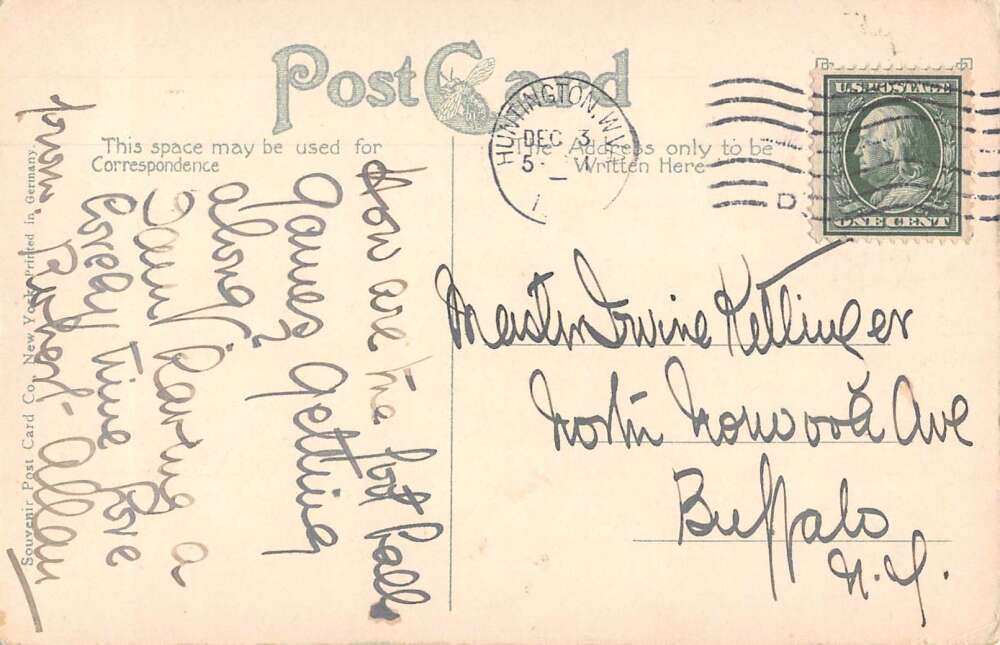 Post Card
This space may be used for
Correspondence
The Address only to be
Written Here
HUNTINGTON, W.V.
DEC 3
5-
1
D
U.S. POSTAGE
ONE CENT
How are the foot ball
games getting
along?
I am having a
lovely time
Love
from Robert Allen
Master Irvine Kittinger
North Norwood Ave
Buffalo
N.Y.
Souvenir Post Card Co., New York. Printed in Germany.